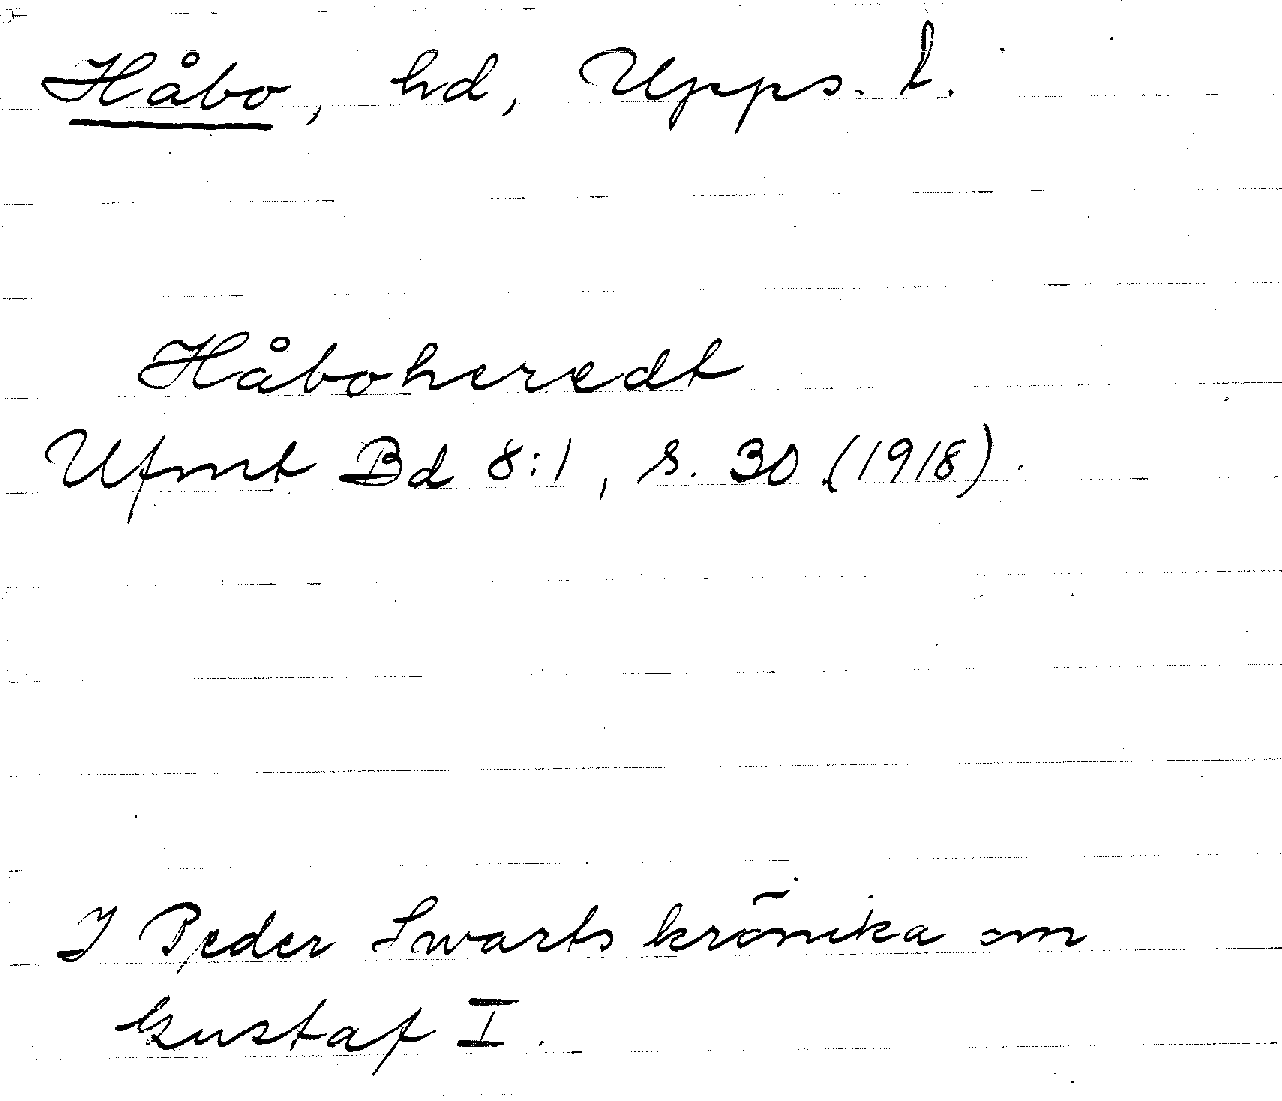 Håbo, hd, Upps. l.
Håboheredt
Ufmt Bd 8:1, s. 30 (1918).
I Peder Swarts krönika om
Gustaf I.